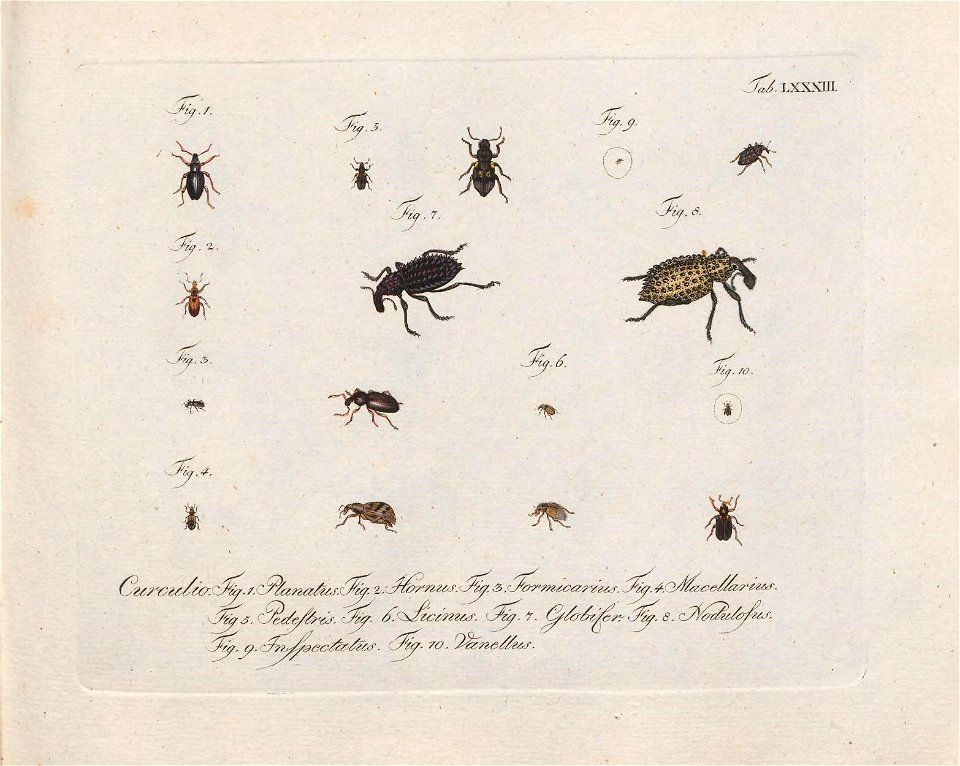 Tab. LXXXIII.
Fig. 1.
Fig. 5.
Fig. 9.
Fig. 7.
Fig. 8.
Fig. 2.
Fig. 3.
Fig. 6.
Fig. 10.
Fig. 4.
Curculio. Fig. 1. Planatus. Fig. 2. Hornus. Fig. 3. Formicarius. Fig. 4. Macellarius.
Fig. 5. Pedeſtris. Fig. 6. Licinus. Fig. 7. Globifer. Fig. 8. Noduloſus.
Fig. 9. Inſpectatus. Fig. 10. Vanellus.